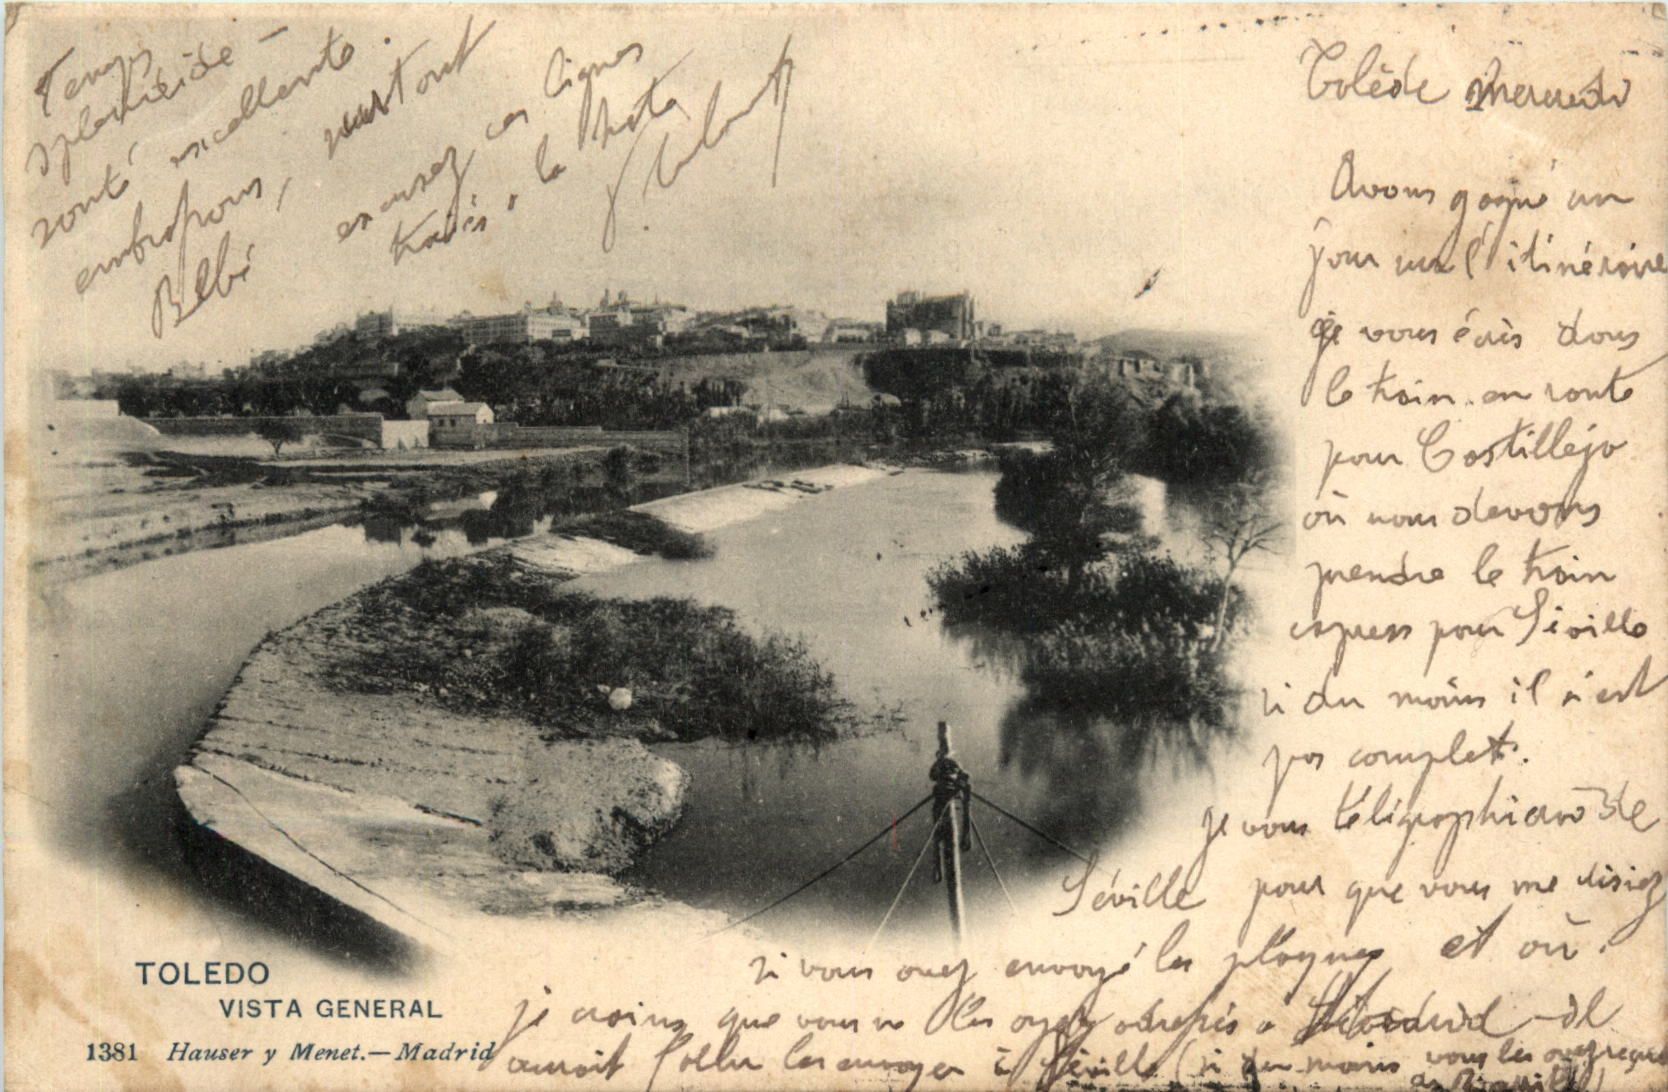 Tolède Mercredi
Avons gagné un
jour sur l'itinéraire
je vous écris dans
le train en route
pour Castillejo
où nous devons
prendre le train
express pour Séville
si du moins il n'est
pas complet.
je vous télégraphierai de
Séville pour que vous me disiez
si vous avez envoyé les plaques et où.
je crains que vous ne les ayez adressés à Madrid - Il
aurait fallu les envoyer à Séville (si du moins vous les avez reçues
Temps
splendide -
santé excellente.
embrassons, surtout
Bébé
excusez ces lignes
à la hâte
TOLEDO
VISTA GENERAL
1381 Hauser y Menet.—Madrid